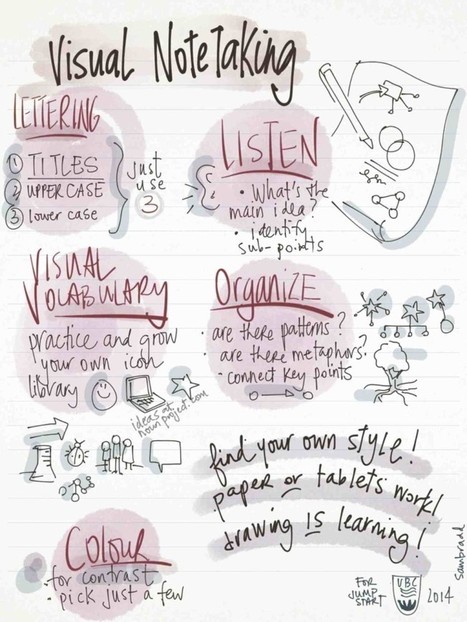 Visual NoteTaking
LETTERING
1 TITLES
2 UPPER CASE
3 lower case
just
use
3
LISTEN
• What's the
main idea?
• identify
sub-points
VISUAL
VOLABULARY
practice and grow
your own icon
library
ideas at
nounproject.com
OrganIZE
• are there patterns?
• are there metaphors?
- connect key points
find your own style!
paper or tablets work!
drawing IS learning!
Colour
• for contrast
• pick just a few
FOR
JUMP
START
UBC
2014
sambradd